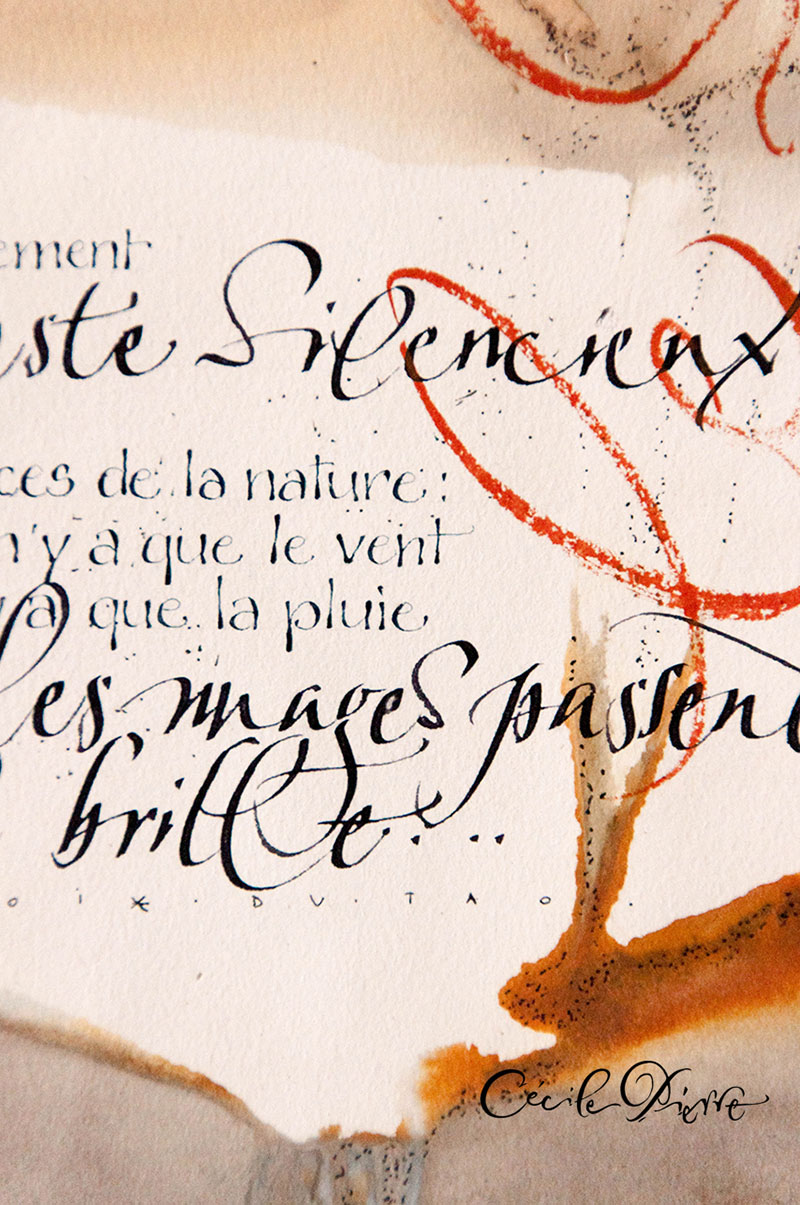 ement
ste Silencieux
ces de la nature :
n'y a que le vent
a que la pluie
les nuages passent
brille...
OIX·DU·TAO·
Cécile Pierre